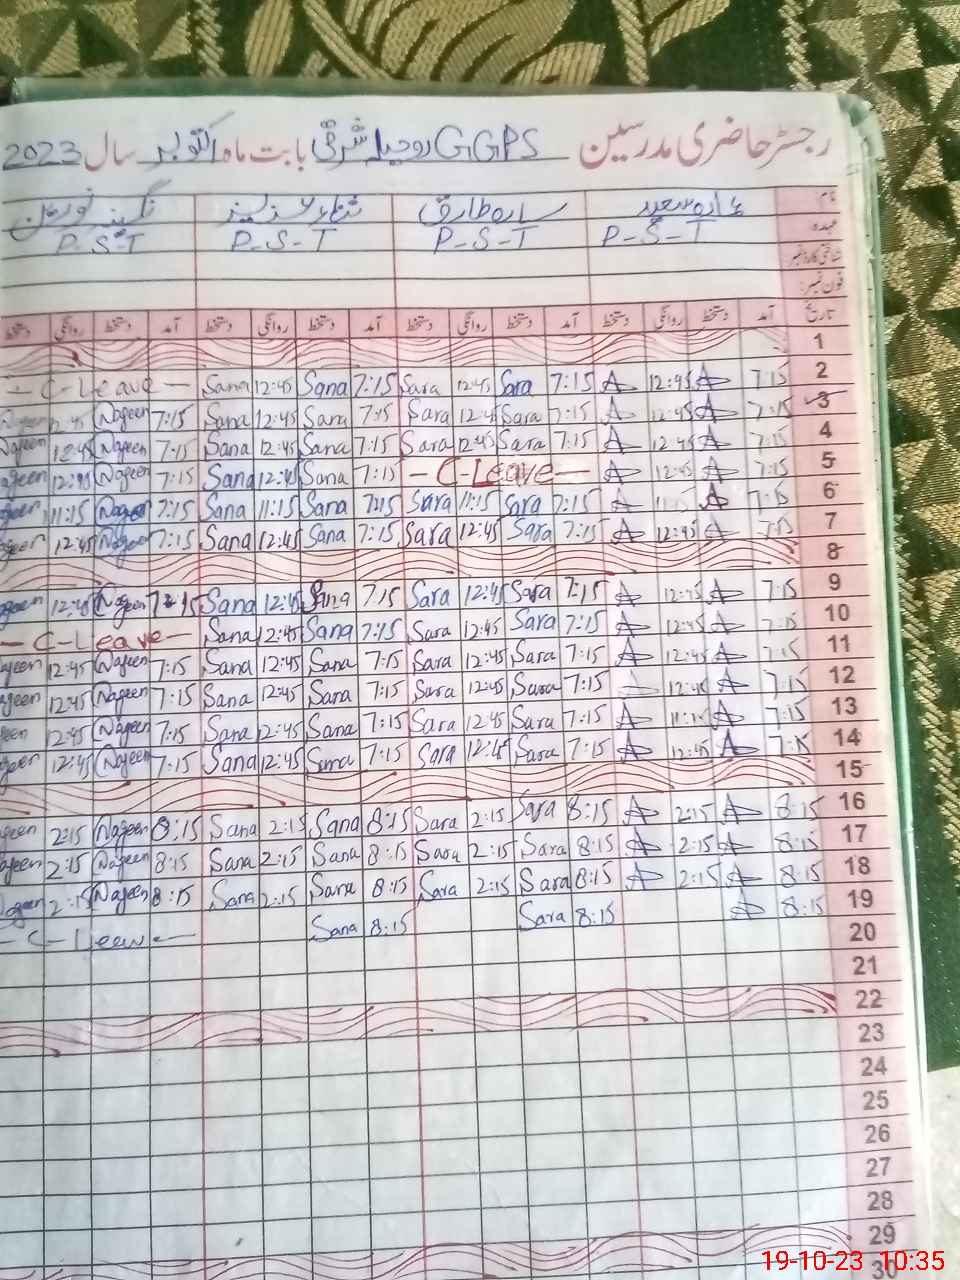 رجسٹر حاضری مدرسین GGPS روحیلہ شرقی بابت ماہ اکتوبر سال 2023
نام سارہ طارق
عہدہ P-S-T P-S-T P-S-T P-S-T
شناختی کارڈ نمبر
فون نمبر:
تاریخ آمد دستخط روانگی دستخط آمد دستخط روانگی دستخط آمد دستخط روانگی دستخط آمد دستخط روانگی دستخط
1
2 7:15 12:45 7:15 Sara 12:45 Sara 7:15 Sana 12:45 Sana - C-Leave -
3 7:15 12:45 7:15 Sara 12:45 Sara 7:15 Sana 12:45 Sana 7:15 Nageen 12:45
4 7:15 12:45 7:15 Sara 12:45 Sara 7:15 Sana 12:45 Sana 7:15 Nageen 12:45 Nageen
5 7:15 12:45 - C-Leave - 7:15 Sana 12:45 Sana 7:15 Nageen 12:45 Nageen
6 7:15 7:15 Sara 11:15 Sara 7:15 Sana 11:15 Sana 7:15 Nageen 11:15
7 7:15 12:45 7:15 Sara 12:45 Sara 7:15 Sana 12:45 Sana 7:15 Nageen 12:45
8
9 7:15 12:45 7:15 Sara 12:45 Sara 7:15 Sana 12:45 Sana 7:15 Nageen 12:45
10 7:15 12:45 7:15 Sara 12:45 Sara 7:15 Sana 12:45 Sana - C-Leave -
11 7:15 12:45 7:15 Sara 12:45 Sara 7:15 Sana 12:45 Sana 7:15 Nageen 12:45
12 7:15 12:45 7:15 Sara 12:45 Sara 7:15 Sana 12:45 Sana 7:15 Nageen 12:45
13 7:15 11:15 7:15 Sara 12:45 Sara 7:15 Sana 12:45 Sana 7:15 Nageen 12:45
14 7:15 12:45 7:15 Sara 12:45 Sara 7:15 Sana 12:45 Sana 7:15 Nageen 12:45
15
16 8:15 2:15 8:15 Sara 2:15 Sara 8:15 Sana 2:15 Sana 8:15 Nageen 2:15
17 8:15 2:15 8:15 Sara 2:15 Sara 8:15 Sana 2:15 Sana 8:15 Nageen 2:15
18 8:15 2:15 8:15 Sara 2:15 Sara 8:15 Sana 2:15 Sana 8:15 Nageen 2:15
19 8:15 8:15 Sara 8:15 Sana - C-Leave
20
21
22
23
24
25
26
27
28
29
30
19-10-23 10:35